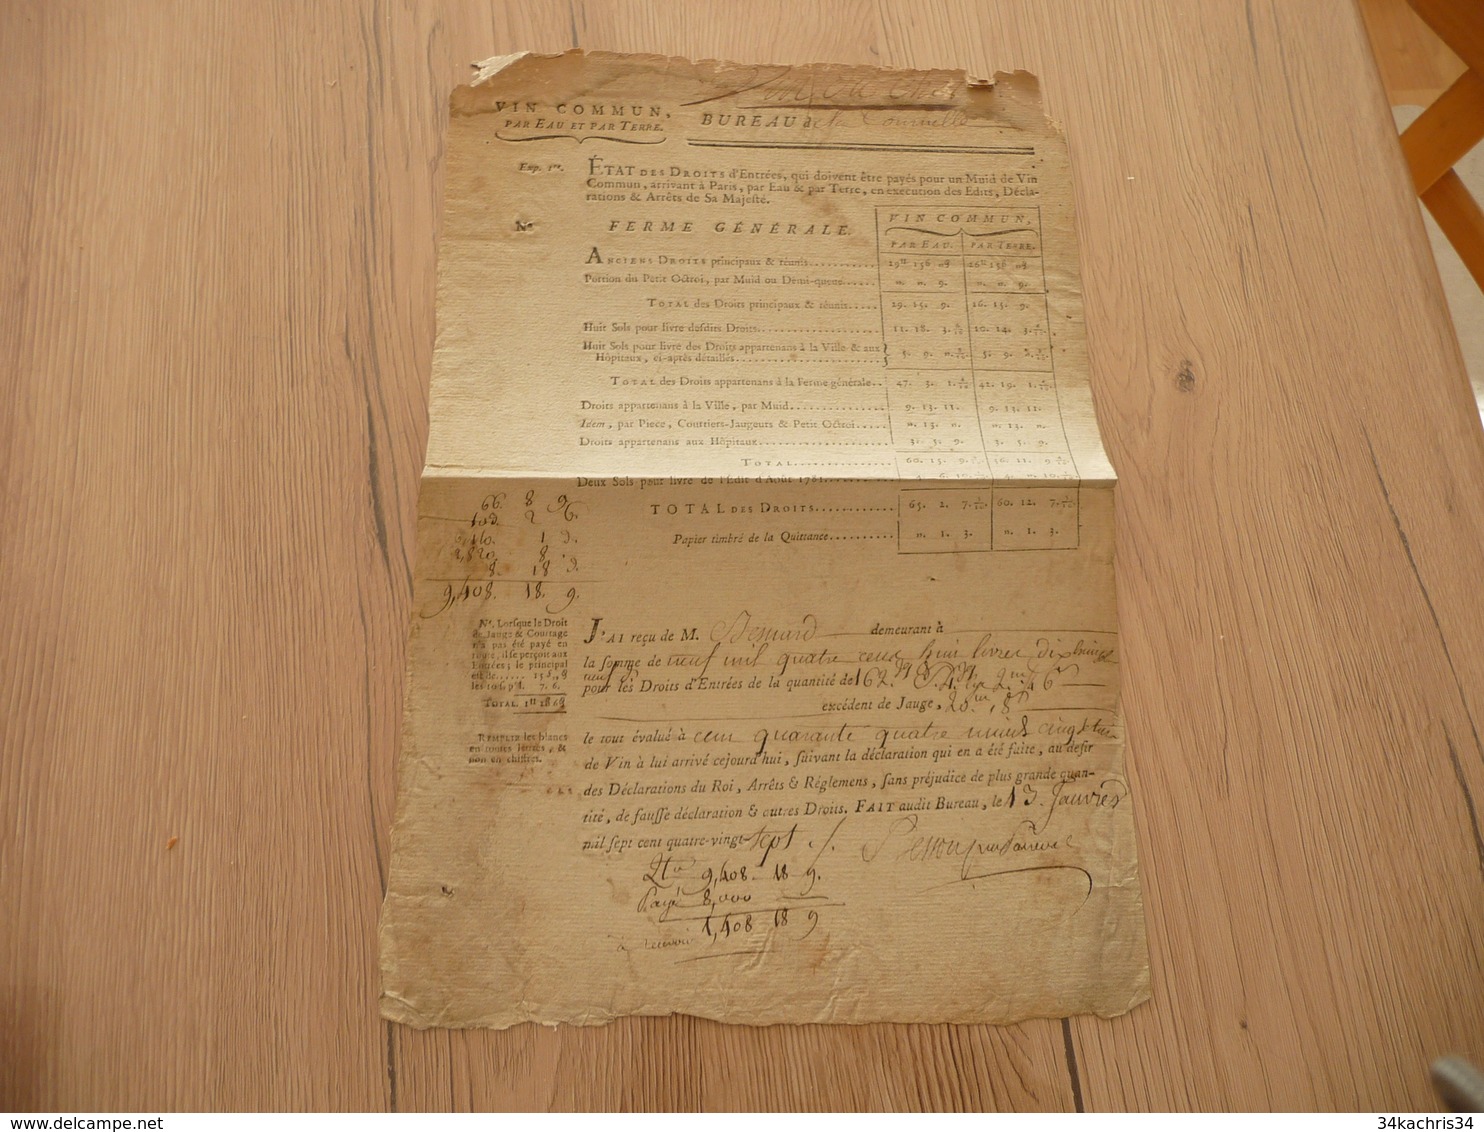 VIN COMMUN,
PAR EAU ET PAR TERRE.
BUREAU de la Tournelle
Exp. 1re.
ÉTAT DES DROITS d'Entrées, qui doivent être payés pour un Muid de Vin
Commun, arrivant à Paris, par Eau & par Terre, en exécution des Edits, Décla-
rations & Arrêts de Sa Majesté.
No
FERME GÉNÉRALE.
VIN COMMUN,
PAR EAU. PAR TERRE.
ANCIENS DROITS principaux & réunis
Portion du Petit Octroi, par Muid ou Demi-queue..... n. n. 9. n. n. 9.
TOTAL des Droits principaux & réunis..... 29. 15. 9. 26. 15. 9.
Huit Sols pour livre desdits Droits 11. 18. 3. 10. 14. 3.
Huit Sols pour livre des Droits appartenans à la Ville & aux
Hôpitaux, ci-après détaillés 5. 9. 5. 9.
TOTAL des Droits appartenans à la Ferme générale.. 47. 3. 1. 42. 19. 1.
Droits appartenans à la Ville, par Muid 9. 13. 11. 9. 13. 11.
Idem, par Piece, Courtiers-Jaugeurs & Petit Octroi n. 13. n.
Droits appartenans aux Hôpitaux 3. 5. 9. 3. 5. 9.
TOTAL 60. 15. 9. 56. 11. 9
Deux Sols pour livre de l'Edit d'Août 1781
TOTAL DES DROITS 65. 2. 7. 60. 12. 7.
Papier timbré de la Quittance n. 1. 3. n. 1. 3.
66. 8 9
2,820. 8.
8. 18 9.
9,408. 18. 9.
Na. Lorsque le Droit
de Jauge & Courtage
n'a pas été payé en
route, il se perçoit aux
Entrées; le principal
est de...... 15 s. 9 d
les 10 s. p l. 7. 6.
TOTAL.
REMPLIR les blancs
en toutes lettres, &
non en chiffres.
J'AI reçu de M. Besnard demeurant à
la somme de neuf mil quatre cens huit livres dix huit s.
neuf d.
pour les Droits d'Entrées de la quantité de 162.
excédent de Jauge, 20m. 18p
le tout évalué à cent quarante quatre muids
de Vin à lui arrivé cejourd'hui, suivant la déclaration qui en a été faite, au desir
des Déclarations du Roi, Arrêts & Réglemens, sans préjudice de plus grande quan-
tité, de fausse déclaration & autres Droits. FAIT audit Bureau, le 13. Janvier
mil sept cent quatre-vingt-sept
9,408. 18 9.
Payé 8,000
à recevoir 1,408 18 9
34kachris34